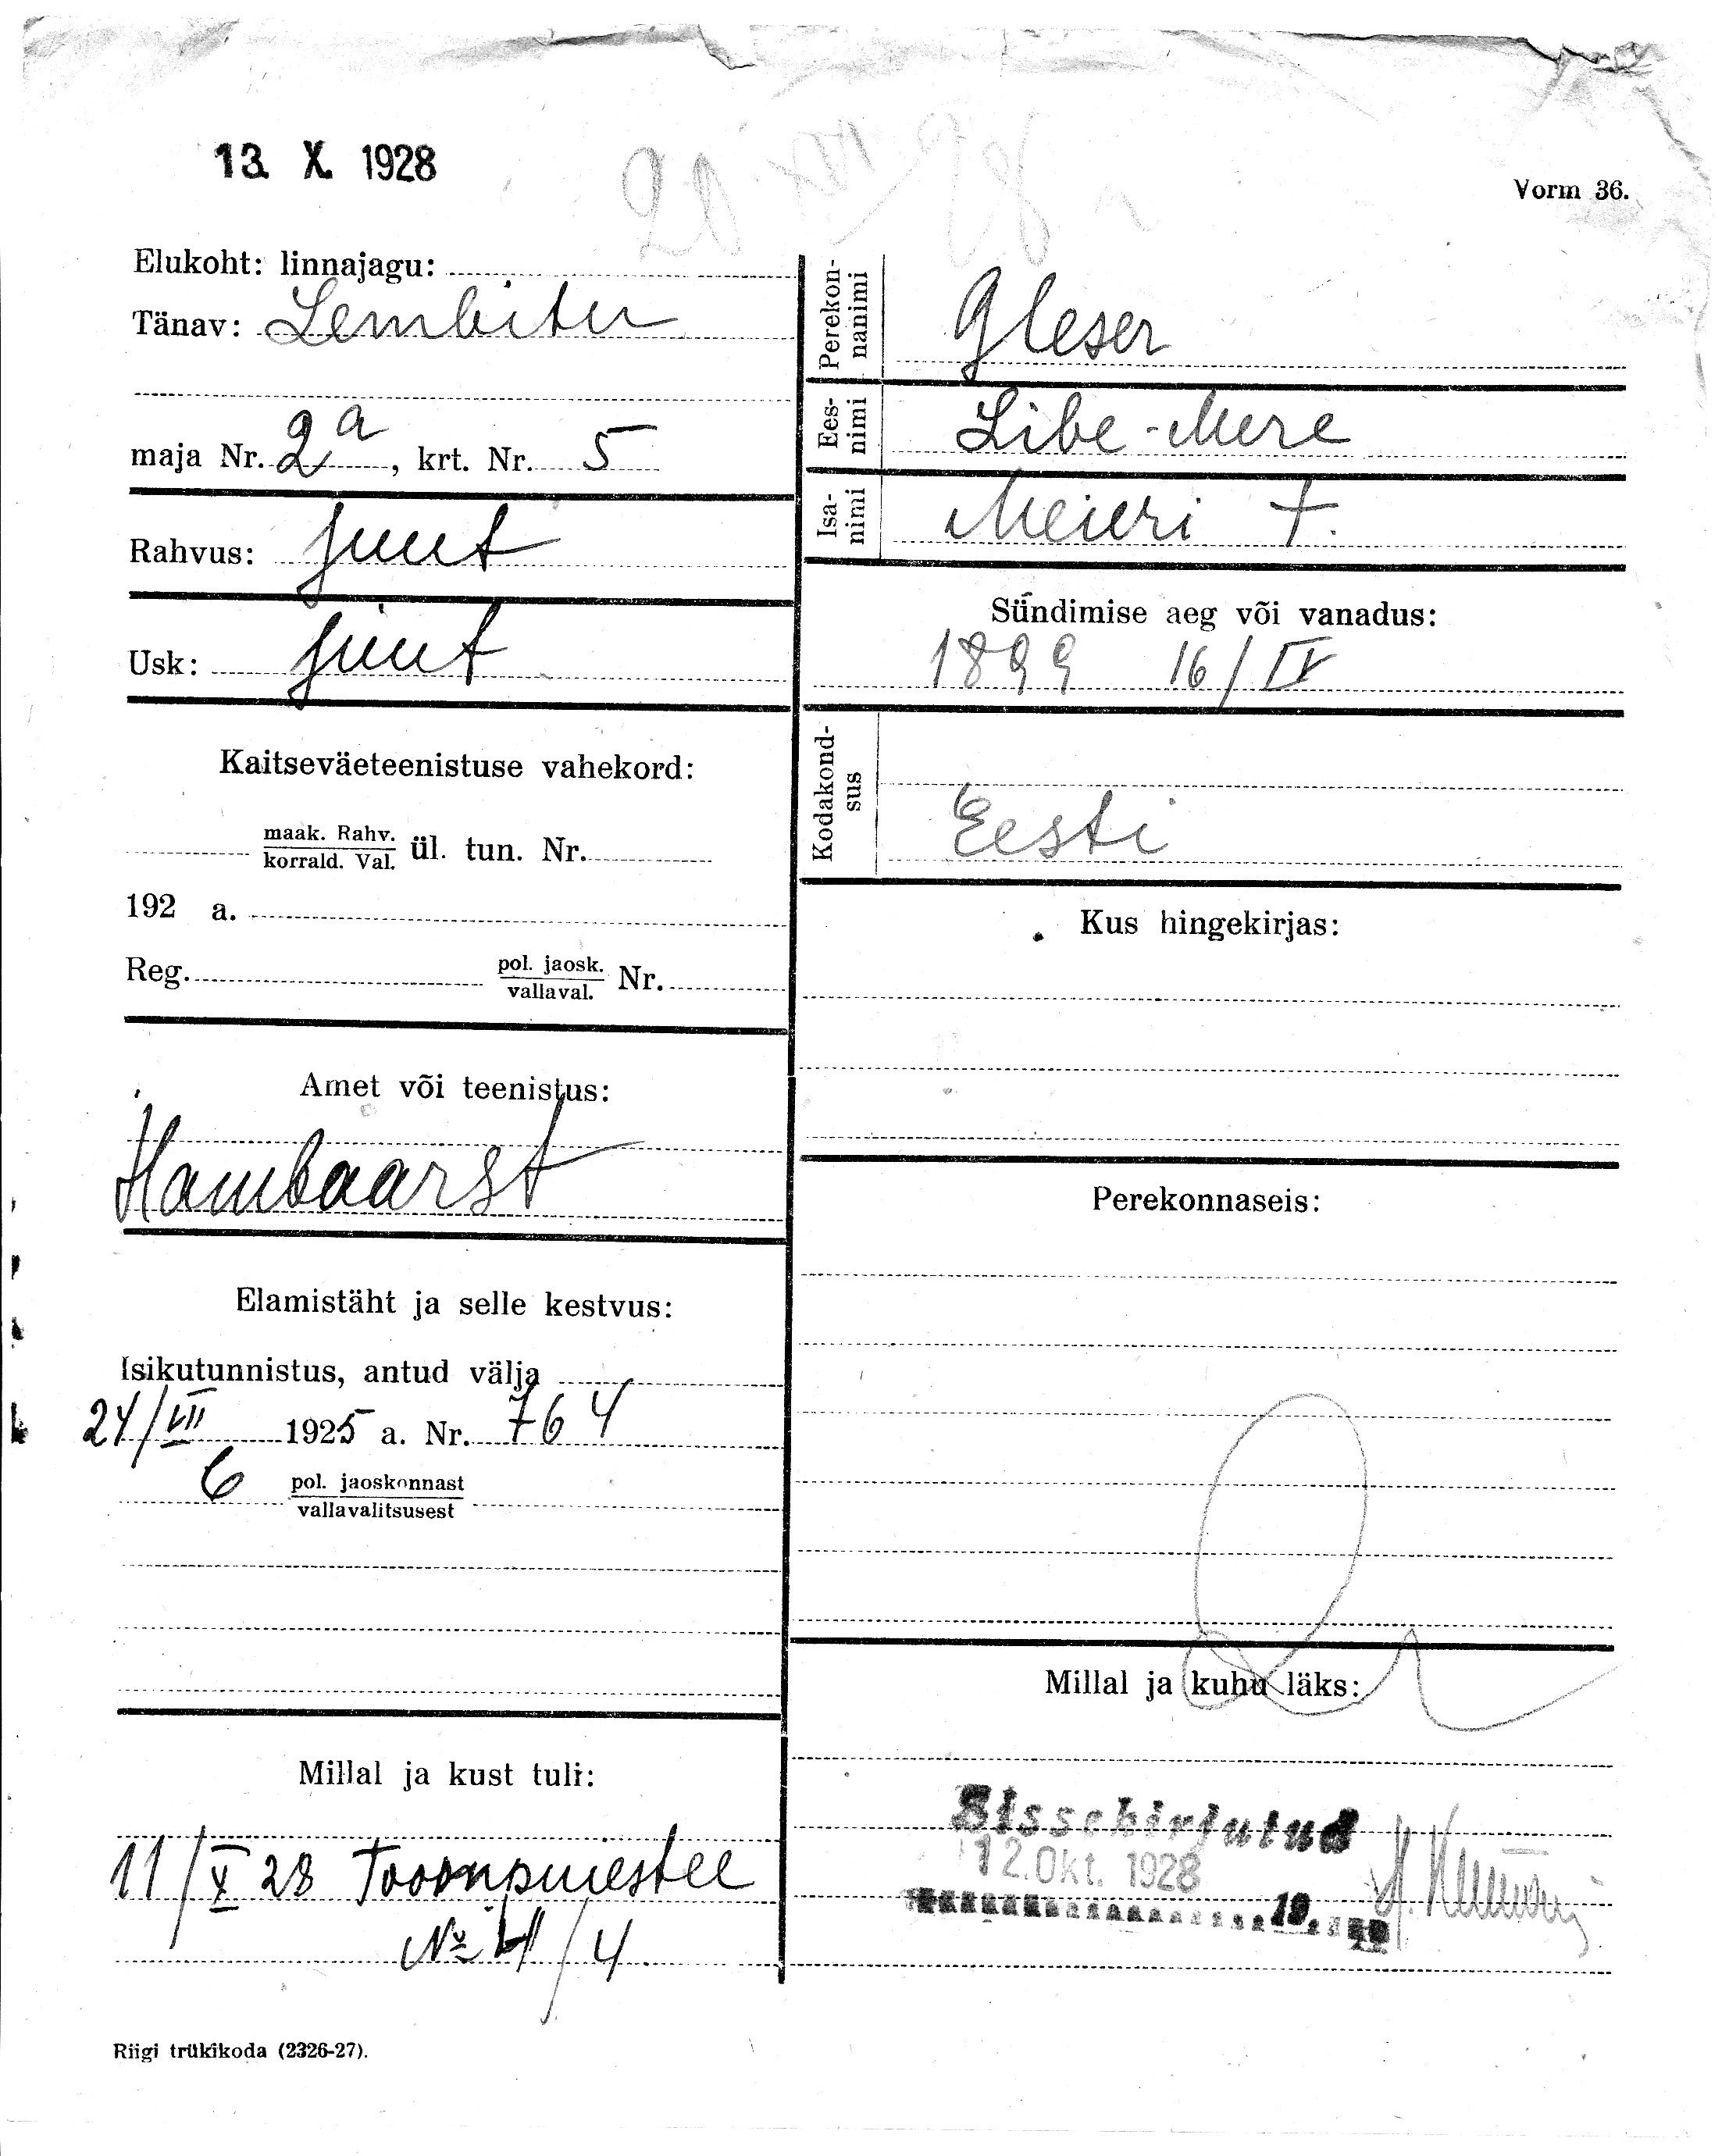 13. X. 1928
Vorm 36.
Elukoht: linnajagu:
Tänav: Lembitu
maja Nr. 2a, krt. Nr. 5
Rahvus: juut
Usk: juut
Kaitseväeteenistuse vahekord:
maak. Rahv.
korrald. Val. ül. tun. Nr.
192 a.
Reg. pol. jaosk.
vallaval. Nr.
Amet või teenistus:
Hambaarst
Elamistäht ja selle kestvus:
Isikutunnistus, antud välja
24/VII 1925 a. Nr. 764
6 pol. jaoskonnast
vallavalitsusest
Millal ja kust tuli:
11/X 28 Toompuiestee
№ 4/4
Perekon-
nanimi
Gleser
Ees-
nimi
Libe-Mere
Isa-
nimi
Meieri t.
Sündimise aeg või vanadus:
1899 16/IV
Kodakond-
sus
Eesti
Kus hingekirjas:
Perekonnaseis:
Millal ja kuhu läks:
Sissekirjutud
12. Okt. 1928
19
Riigi trükikoda (2326-27).